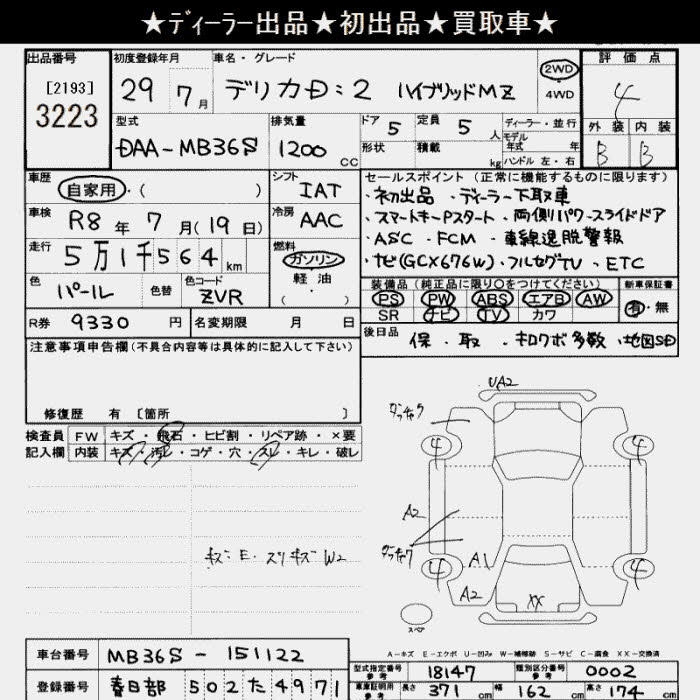 ★ディーラー出品★初出品★買取車★
出品番号 初度登録年月 車名・グレード 評価点
[2193] 3223 29 7月 デリカD:2 ハイブリッドMZ 2WD 4WD 4
型式 排気量 ドア 5 定員 5人 ディーラー・並行 外装 内装
DAA-MB36S 1200cc 形状 積載 kg モデル年式 年 ハンドル 左・右 B B
車歴 自家用・( ) シフト IAT セールスポイント(正常に機能するものに限ります)
・初出品 ・ディーラー下取車
車検 R8年7月(19日) 冷房 AAC ・スマートキーPスタート ・両側パワースライドドア
走行 5万1千564km 燃料 ガソリン 軽油 ( ) ・ASC ・FCM ・車線逸脱警報
・ナビ(GCX676W) ・フルセグTV ・ETC
色 パール 色替 色コード ZVR 装備品(純正品に限り○をつけてください) 新車保証書
PS PW ABS エアB AW 有・無
SR ナビ TV カワ
R券 9330円 名変期限 月 日 後日品 保・取・キロクボ多数・地図SD
注意事項申告欄(不具合内容等は具体的に記入して下さい)
修復歴 有 [箇所 ]
検査員 FW キズ・飛石・ヒビ割・リペア跡・×要
記入欄 内装 キズ・汚レ・コゲ・穴・スレ・キレ・破レ
キズ・E・スリキズ W2
UA2
タッチアク
4 4
A2
タッチアク
A1
4 4
A2 XX
スペア
A-キズ E-エクボ U-凹み W-補修跡 S-サビ C-腐食 XX-交換済
車台番号 MB36S - 151122 型式指定番号 参考 18147 類別区分番号 参考 0002
登録番号 春日部 502た4971 車庫証明用 参考 長さ 371cm 幅 162cm 高さ 174cm